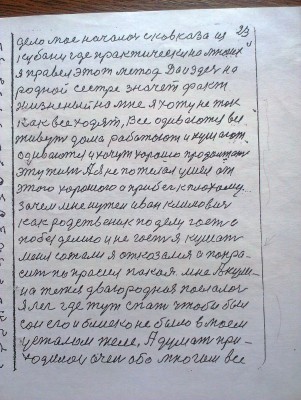 23
дело мое началося с кавказа и
кубани где практически на многих
я правел этот метод Даи здесь на
родной сестре значет факт
жизненый на мне я хочу не так
как все ходят, Все одиваются все
живут дома работают и кушают
одиваются и хочут хорошо продолжать
эту жизнь А я не пожелал ушел от
этого хорошого и прибег к плохому.
зачем мне нужен иван климович
как родственик по делу гость а
победенно и не гость я кушать
меня сажали я отказался и попра-
сил попрасил пакоя. мне Акули-
на тоже двагородная послала
я лег где тут спать чтобы был
сон его и близко не было в моем
усталом желе, А думат при-
ходилос очен обо многом все